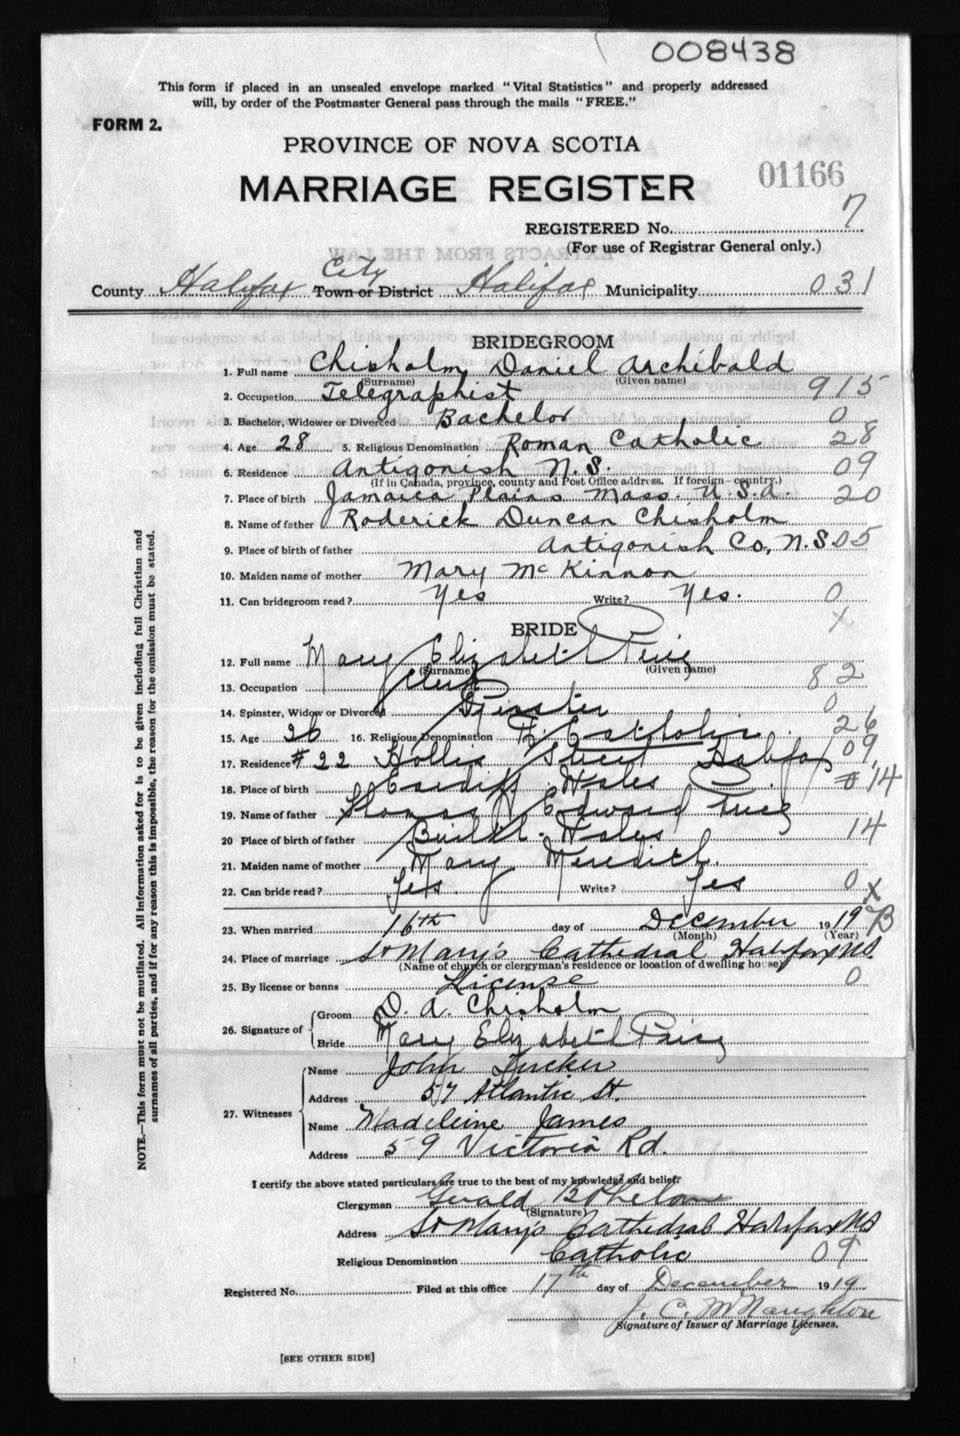 008438
This form if placed in an unsealed envelope marked "Vital Statistics" and properly addressed
will, by order of the Postmaster General pass through the mails "FREE."
FORM 2.
PROVINCE OF NOVA SCOTIA
MARRIAGE REGISTER
01166
REGISTERED No. 7
(For use of Registrar General only.)
City
County Halifax Town or District Halifax Municipality 031
BRIDEGROOM
1. Full name Chisholm Daniel Archibald
(Surname) (Given name)
2. Occupation Telegraphist 915
3. Bachelor, Widower or Divorced Bachelor 0
4. Age 28 5. Religious Denomination Roman Catholic 28
6. Residence Antigonish N.S. 09
(If in Canada, province, county and Post Office address. If foreign-country.)
7. Place of birth Jamaica Plains Mass. U.S.A. 20
8. Name of father Roderick Duncan Chisholm
9. Place of birth of father Antigonish Co, N.S 05
10. Maiden name of mother Mary McKinnon
11. Can bridegroom read? Yes Write? Yes. 0
x
BRIDE
12. Full name Mary Elizabeth
(Surname) (Given name)
13. Occupation 82
14. Spinster, Widow or Divorced Spinster 0
15. Age 26 16. Religious Denomination R. Catholic 26
17. Residence #22 Hollis Street Halifax 09
18. Place of birth Cardiff Wales #14
19. Name of father Thomas Edward
20 Place of birth of father Wales 14
21. Maiden name of mother Mary Meredith.
22. Can bride read? Yes Write? Yes 0 x
23. When married 16th day of December 1919 B
(Month) (Year)
24. Place of marriage St Mary's Cathedral Halifax NS.
(Name of church or clergyman's residence or location of dwelling house)
25. By license or banns License 0
26. Signature of Groom D. A. Chisholm
Bride Mary Elizabeth
27. Witnesses
Name John Tucker
Address 57 Atlantic St.
Name Madeleine James
Address 59 Victoria Rd.
I certify the above stated particulars are true to the best of my knowledge and belief.
Clergyman Gerald
(Signature)
Address St Mary's Cathedral Halifax NS
Religious Denomination Catholic 09
Registered No. Filed at this office 17th day of December 1919
J. C. McNaughton
Signature of Issuer of Marriage Licenses.
[SEE OTHER SIDE]
NOTE.—This form must not be mutilated. All information asked for is to be given including full Christian and
surnames of all parties, and if for any reason this is impossible, the reason for the omission must be stated.